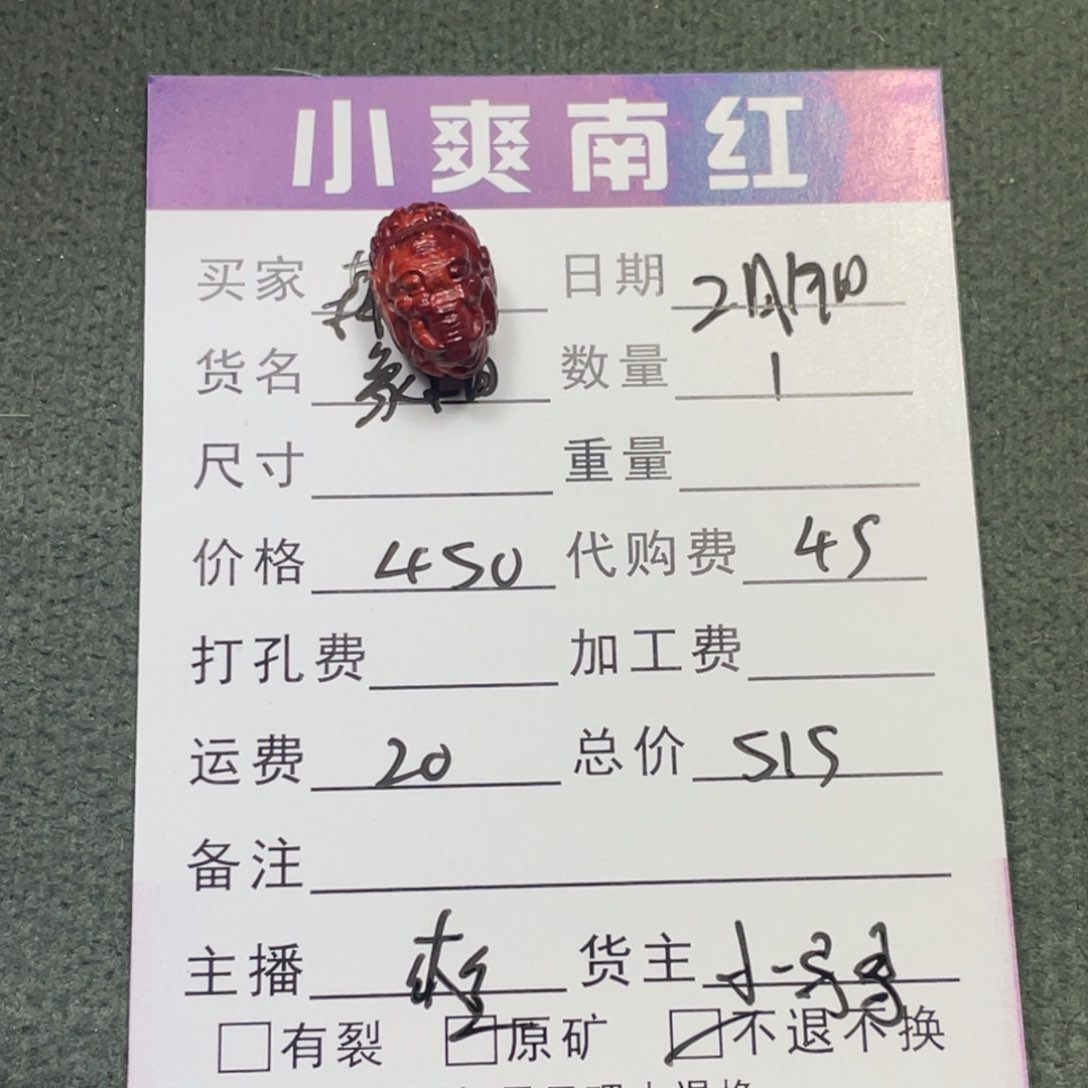 小爽南红
买家 日期 2月19日
货名 象 数量 1
尺寸 重量
价格 450 代购费 45
打孔费 加工费
运费 20 总价 515
备注
主播 货主
有裂 原矿 不退不换